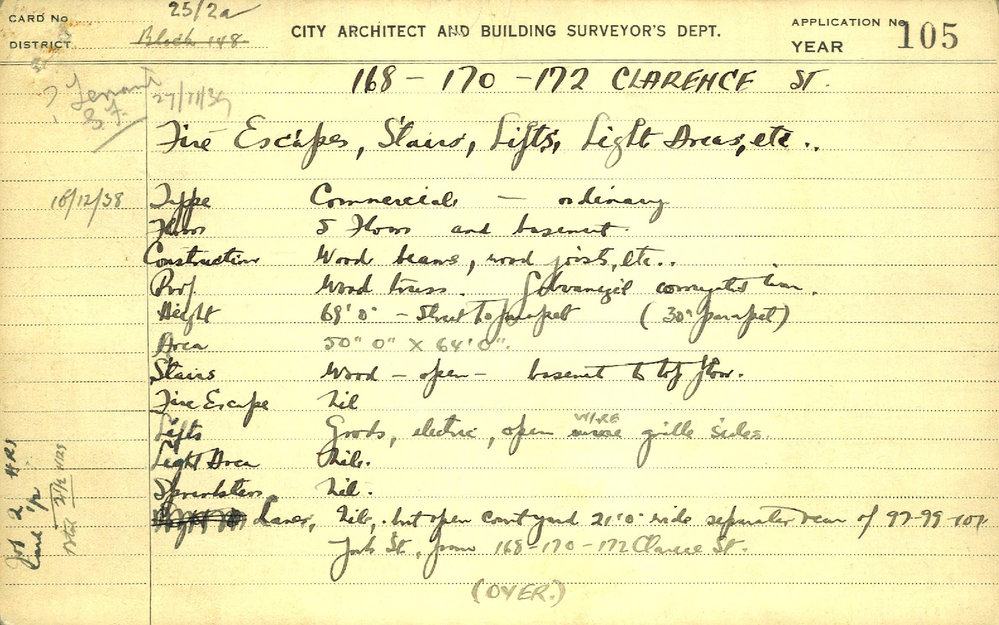 CARD No 25/2a
DISTRICT Block 148
CITY ARCHITECT AND BUILDING SURVEYOR'S DEPT.
APPLICATION No 105
YEAR
168 - 170 - 172 CLARENCE ST.
? Tenant 27/11/39
G.F.
Fire Escapes, Stairs, Lifts, Light Areas, etc..
16/12/38 Type Commercial - ordinary
Floors 5 Floors and basement.
Construction Wood beams, wood joists, etc..
Roof Wood truss. Galvanized corrugated iron.
Height 69'0" - Street to parapet (30" parapet)
Area 50'0" x 64'0".
Stairs Wood - open - basement to top floor.
Fire Escape Nil
Lifts Goods, electric, open WIRE grille sides.
Light Area Nil.
Sprinklers Nil.
Lanes, Nil, but open courtyard 21'0" wide separates rear of 97-99-101
York St, from 168-170-172 Clarence St.
(OVER.)
Job 2 HRS
Card 1/2
Total 2 1/2 HRS